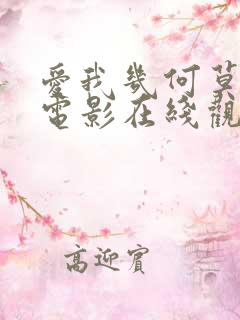 愛我幾何莫
電影在綫觀
高迎賓